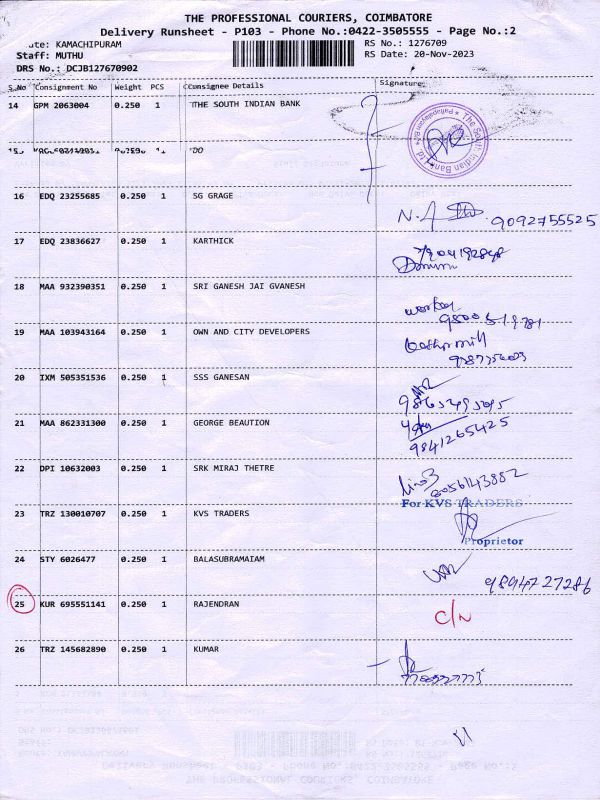 THE PROFESSIONAL COURIERS, COIMBATORE
Delivery Runsheet - P103 - Phone No.:0422-3505555 - Page No.:2
ute: KAMACHIPURAM RS No.: 1276709
Staff: MUTHU RS Date: 20-Nov-2023
DRS No.: DCJB127670902
S.No Consignment No Weight PCS Consignee Details Signature
14 GPM 2063004 0.250 1 THE SOUTH INDIAN BANK
The South Indian Bank Ltd.
DO
16 EDQ 23255685 0.250 1 SG GRAGE
N.A 9092755525
17 EDQ 23836627 0.250 1 KARTHICK
18 MAA 932390351 0.250 1 SRI GANESH JAI GVANESH
19 MAA 103943164 0.250 1 OWN AND CITY DEVELOPERS
20 IXM 505351536 0.250 1 SSS GANESAN
21 MAA 862331300 0.250 1 GEORGE BEAUTION
9841265425
22 DPI 10632003 0.250 1 SRK MIRAJ THETRE
For KVS TRADERS
23 TRZ 130010707 0.250 1 KVS TRADERS
Proprietor
24 STY 6026477 0.250 1 BALASUBRAMAIAM
9894727286
25 KUR 695551141 0.250 1 RAJENDRAN C/N
26 TRZ 145682890 0.250 1 KUMAR